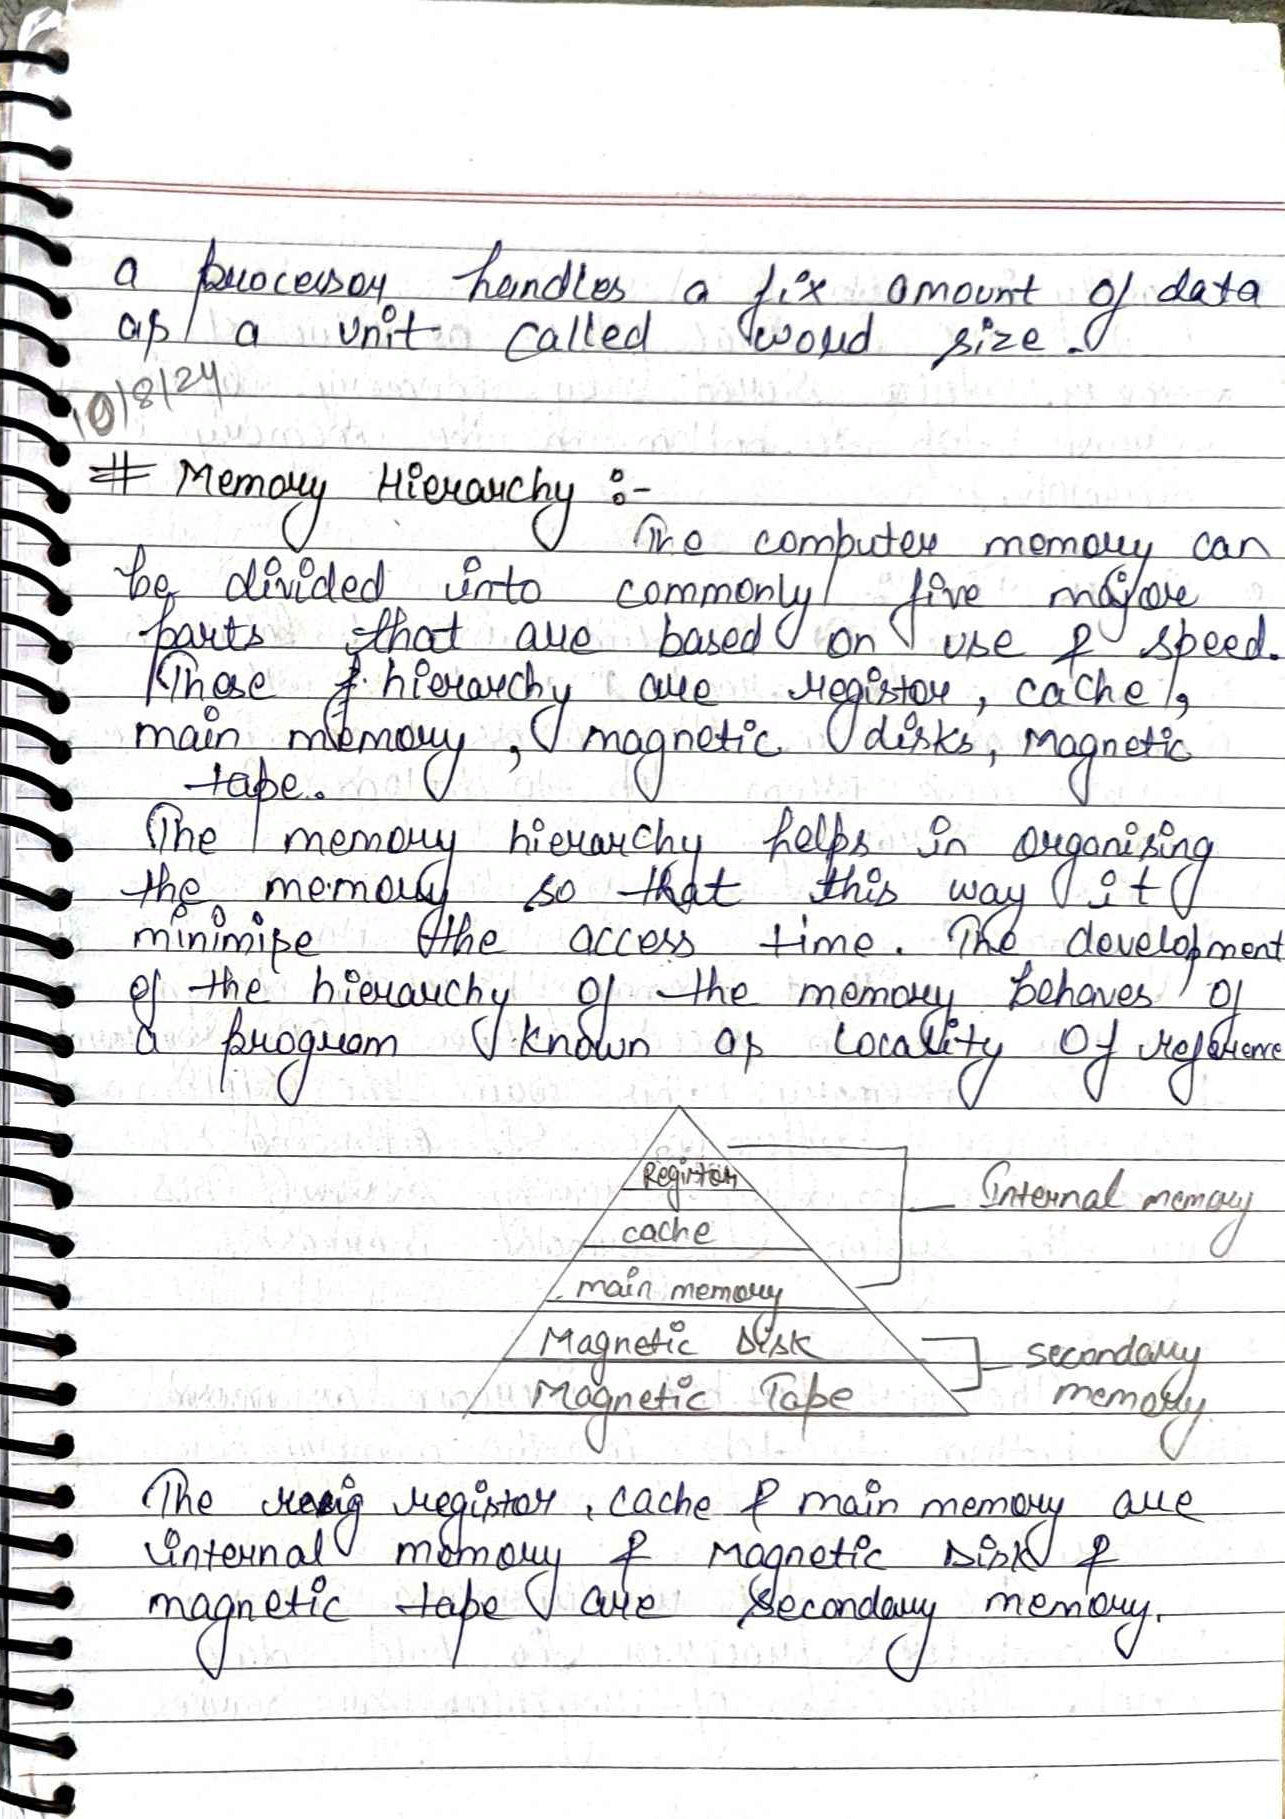 a processor handles a fix amount of data
as a unit called word size.
10/8/24
# Memory Hierarchy :-
The computer memory can
be divided into commonly five major
parts that are based on use & speed.
These hierarchy are registor, cache,
main memory, magnetic disks, Magnetic
tape.
The memory hierarchy helps in organising
the memory so that this way it
minimise the access time. The development
of the hierarchy of the memory behaves of
a program known as locality of reference
Registor
cache
main memory
Internal memory
Magnetic Disk
Magnetic Tape
secondary
memory
The registor, cache & main memory are
internal memory & Magnetic Disk &
magnetic tape are secondary memory.